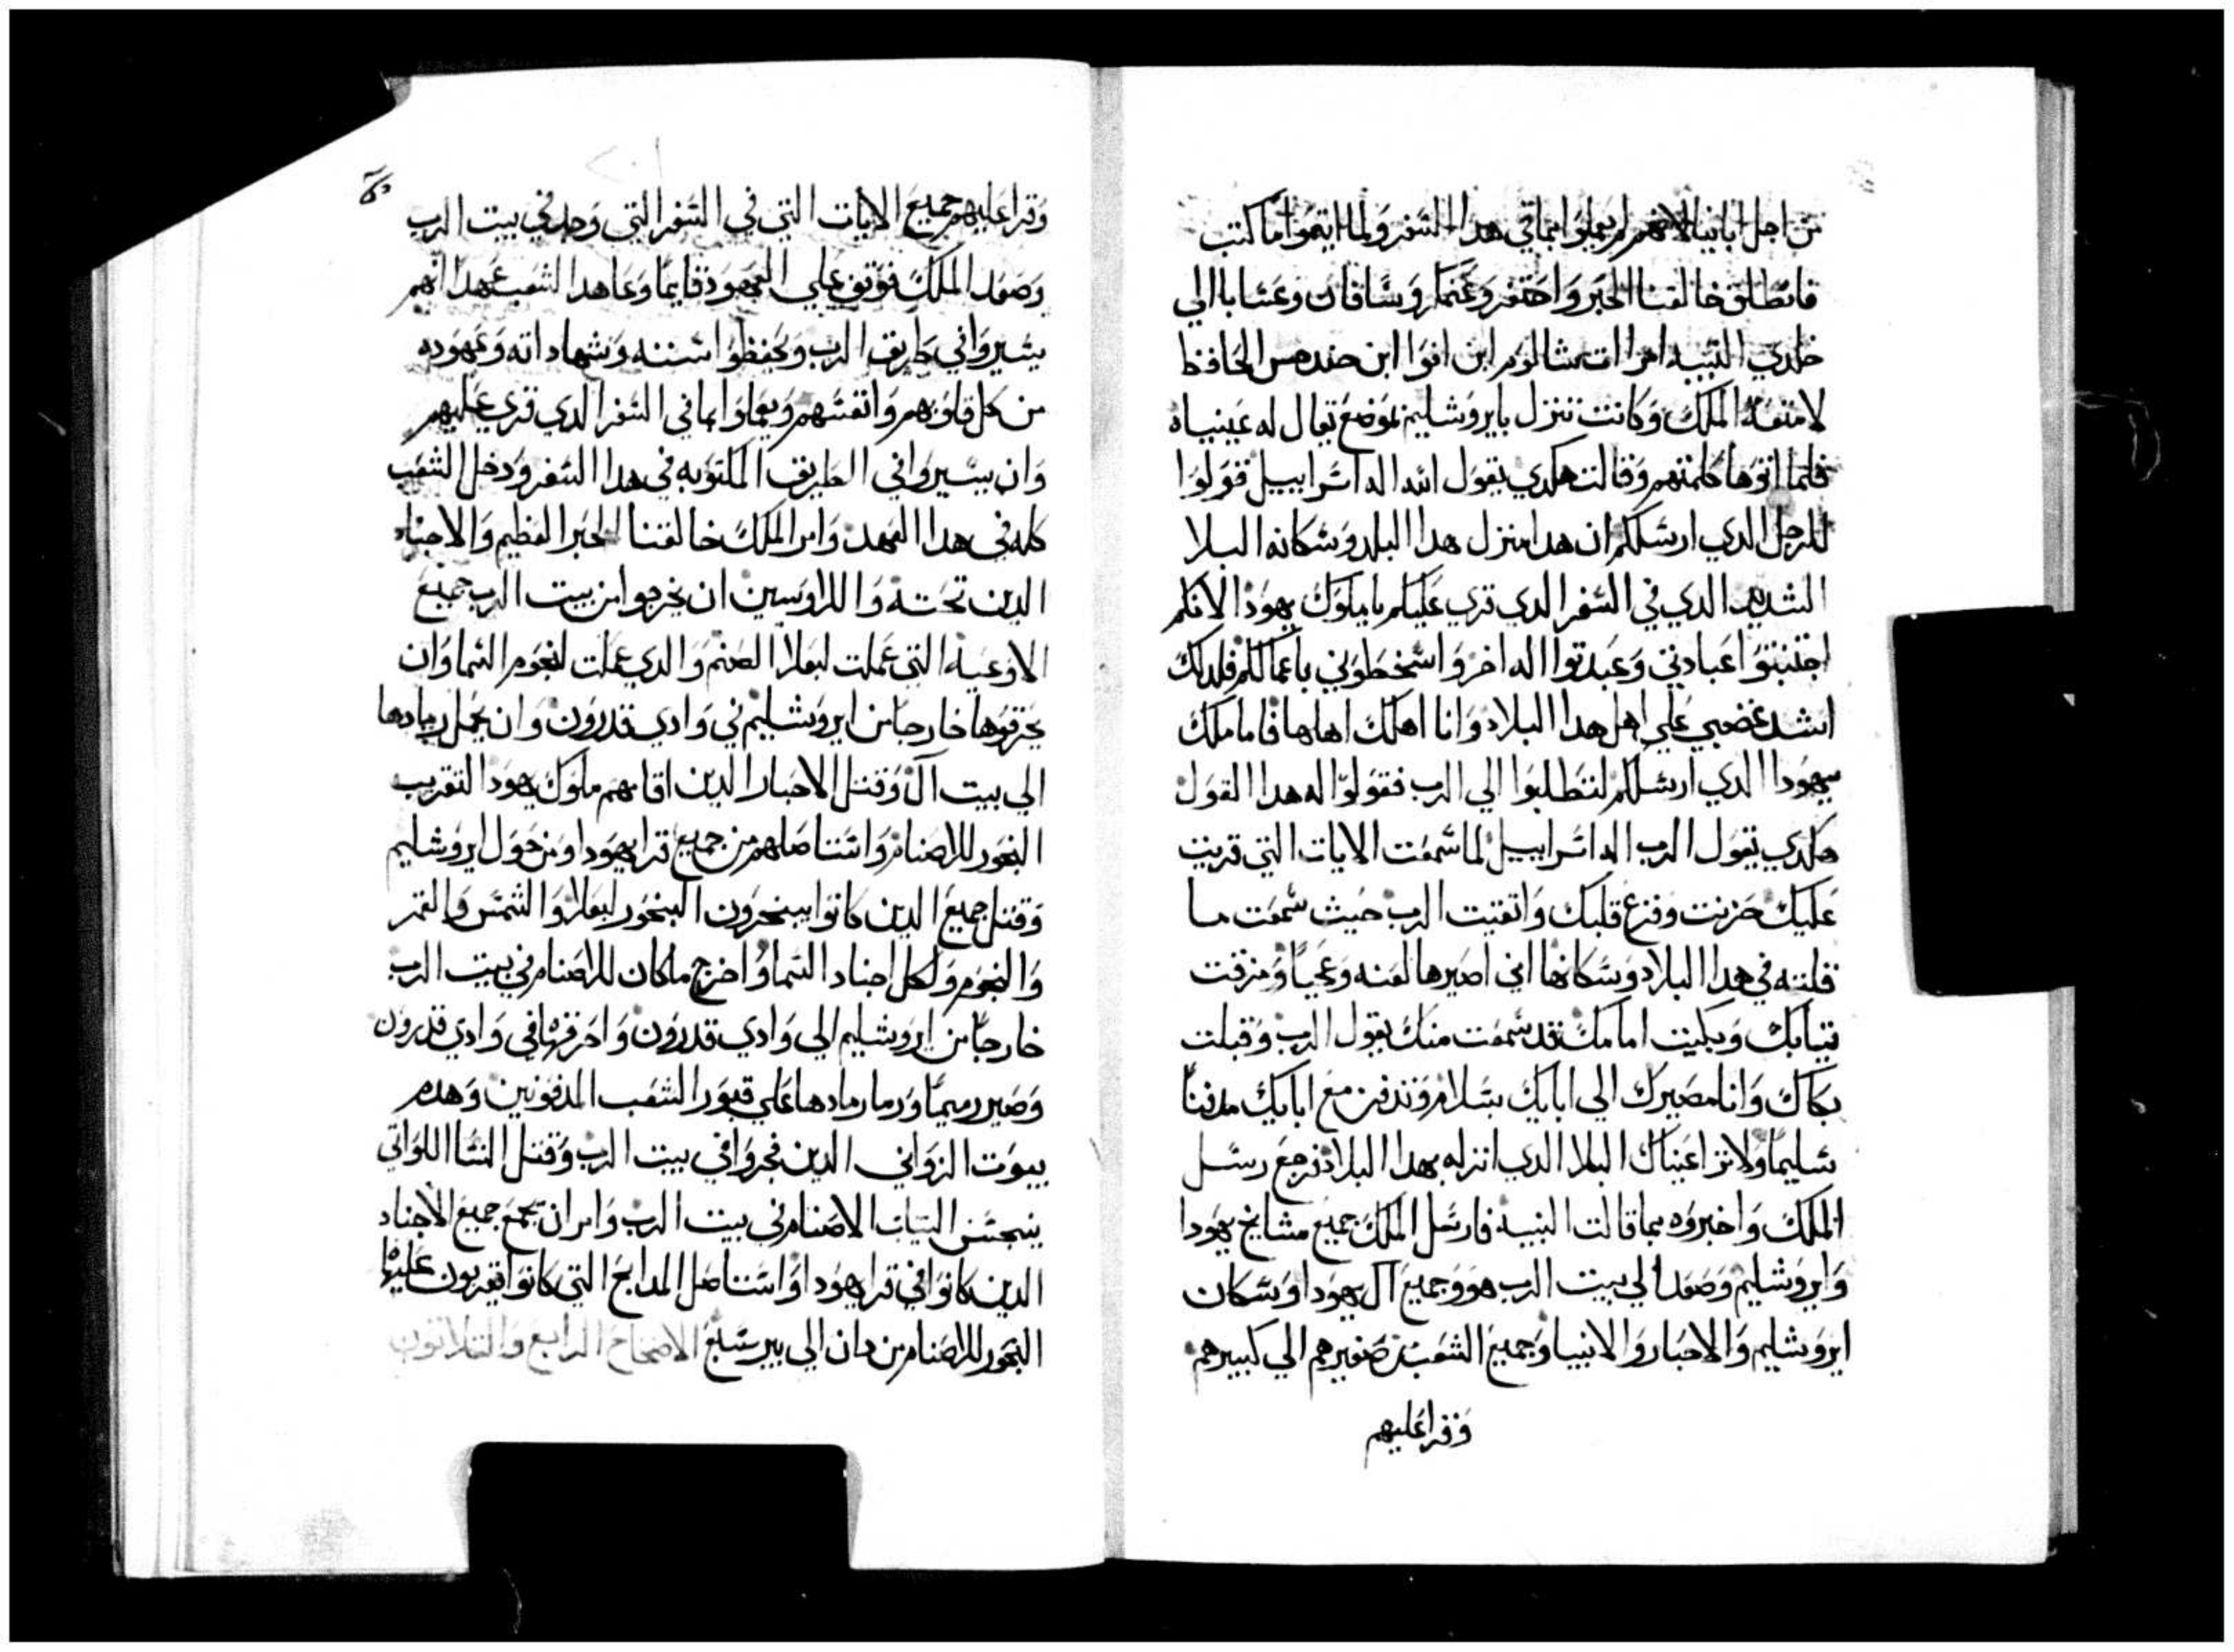 من اجل ابائنا لانهم لم يعملوا بما في هدا السفر ولما اتيموا ما كتب
فانطلق خالقنا الحبر واحتقر وعنكار وساقان وعسابا الي
خلدي النبيه امراات مشالوم ابن انوا ابن حندمس الحافظ
لامتعة الملك وكانت تنزل بايروشليم بموضع يقال له عينياه
فلما اتوها كلمتهم وقالت هكدي يقول الله اله اسراييل قولوا
للرجل الدي ارسلكم ان هدا منزل هدا البلد وسكانه البلا
الشديد الدي في السفر الدي قري عليكم يا ملوك يهودا لانكم
اجتنبتوا عبادتي وعبدتوا اله اخر واسخطوني باعمالكم فلدلك
اشتد غضبي علي اهل هدا البلاد وانا اهلك اهلها فاما ملك
يهودا الدي ارسلكم لتطلبوا الي الرب فقولوا له هدا القول
هكدي يقول الرب اله اسراييل لما سمعت الايات التي قريت
عليك حزنت وفزع قلبك واتقيت الرب حيث سمعت ما
قلته في هدا البلاد وسكانها اني اصيرها لعنه وعجبا ومزقت
تيابك وبكيت امامك قد سمعت منك يقول الرب وقبلت
بكاك وانا مصيرك الي ابايك بسلام وتدفن مع ابايك مدفنا
سليما ولا ترا عيناك البلا الدي انزله بهدا البلاد فرجع رسل
الملك واخبروه بما قالت النبيه فارسل الملك جميع مشايخ يهودا
وايروشليم وصعد الي بيت الرب هو وجميع آل يهودا وسكان
ايروشليم والاحبار والانبيا وجميع الشعب من صغيرهم الي كبيرهم
وقرا عليهم
وقرا عليهم جميع الايات التي في السفر التي وجد في بيت الرب
وصعد الملك فوقف علي العمود قايما وعاهد الشعب عهدا انهم
يسيروا في طريق الرب ويحفظوا سننه وشهاداته وعهوده
من كل قلوبهم وانفسهم ويعملوا بما في السفر الدي قري عليهم
وان يسيروا في الطريق المكتوبه في هدا السفر ودخل الشعب
كله في هدا العهد وامر الملك خالقنا الحبر العظيم والاحبار
الدين تحته واللاويين ان يخرجوا من بيت الرب جميع
الاوعيه التي عملت لبعلا الصنم والدي عملت لنجوم السما وان
يحرقوها خارجا من ايروشليم في وادي قدرون وان يحمل رمادها
الي بيت آل وقتل الاحبار الدين اقامهم ملوك يهودا لتقريب
البخور للاصنام واستاصلهم من جميع قرا يهودا ومن حول ايروشليم
وقتل جميع الدين كانوا يبخرون البخور لبعلا والشمس والقمر
والنجوم ولكل اجناد السما واخرج ما كان للاصنام في بيت الرب
خارجا من ايروشليم الي وادي قدرون واحرقها في وادي قدرون
وصير رميما ورما رمادها علي قبور الشعب المدفونين وهدم
بيوت الزواني الدين فجروا في بيت الرب وقتل النسا اللواتي
ينسجن التياب الاصنام في بيت الرب وامر ان تجمع جميع الاجناد
الدين كانوا في قرا يهودا واستاصل المدابح التي كانوا يقربون عليها
البخور للاصنام من دان الي بير سبع الاصحاح الرابع والتلاتون